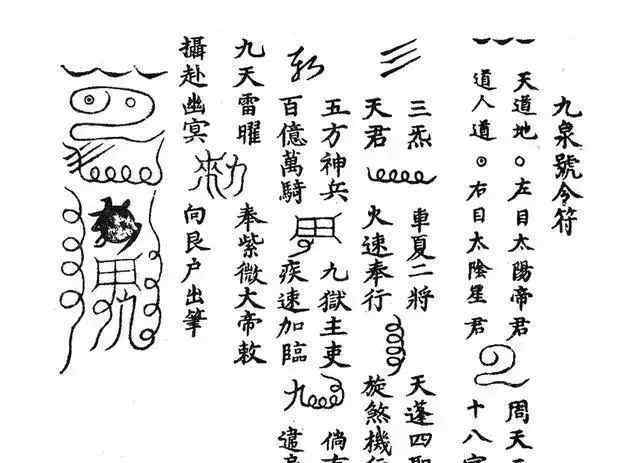 九泉號令符
天道地○左目太陽帝君 周天
道人道⊙右目太陰星君 十八
三炁 車夏二將 天蓬四
天君 火速奉行 旋煞機
五方神兵 九獄主吏 倘
百億萬騎 疾速加臨 違
九天雷曜 奉紫微大帝敕
攝赴幽冥 向艮户出筆